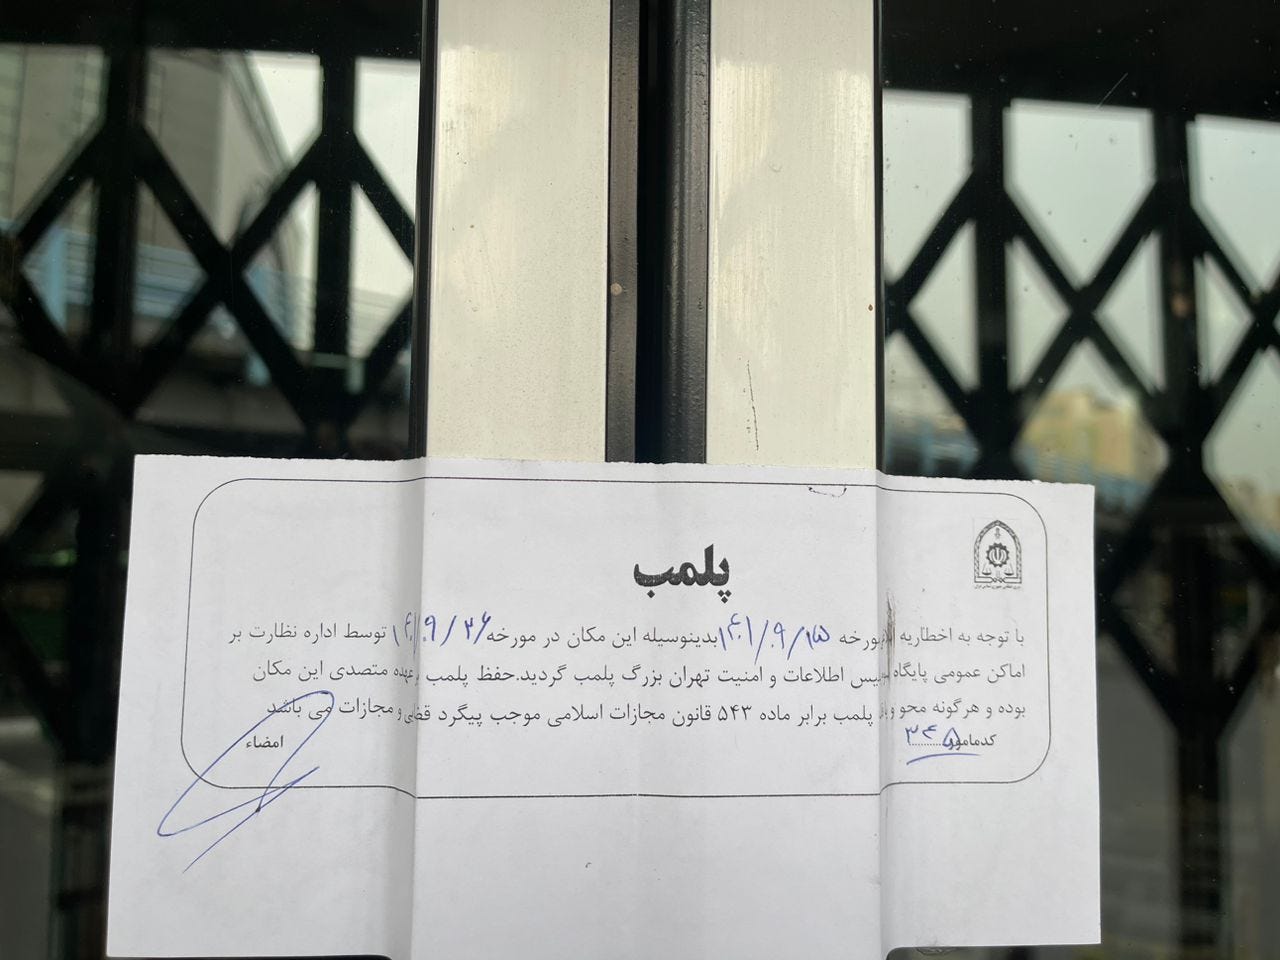 پلمب
با توجه به اخطاریه مورخه ۱۴۰۱/۰۹/۱۵ بدینوسیله این مکان در مورخه ۱۴۰۱/۰۹/۲۶ توسط اداره نظارت بر
اماکن عمومی پایگاه پلیس اطلاعات و امنیت تهران بزرگ پلمب گردید.حفظ پلمب عهده متصدی این مکان
بوده و هرگونه محو و پلمب برابر ماده ۵۴۳ قانون مجازات اسلامی موجب پیگرد قضایی و مجازات می باشد
کدمامور
امضاء